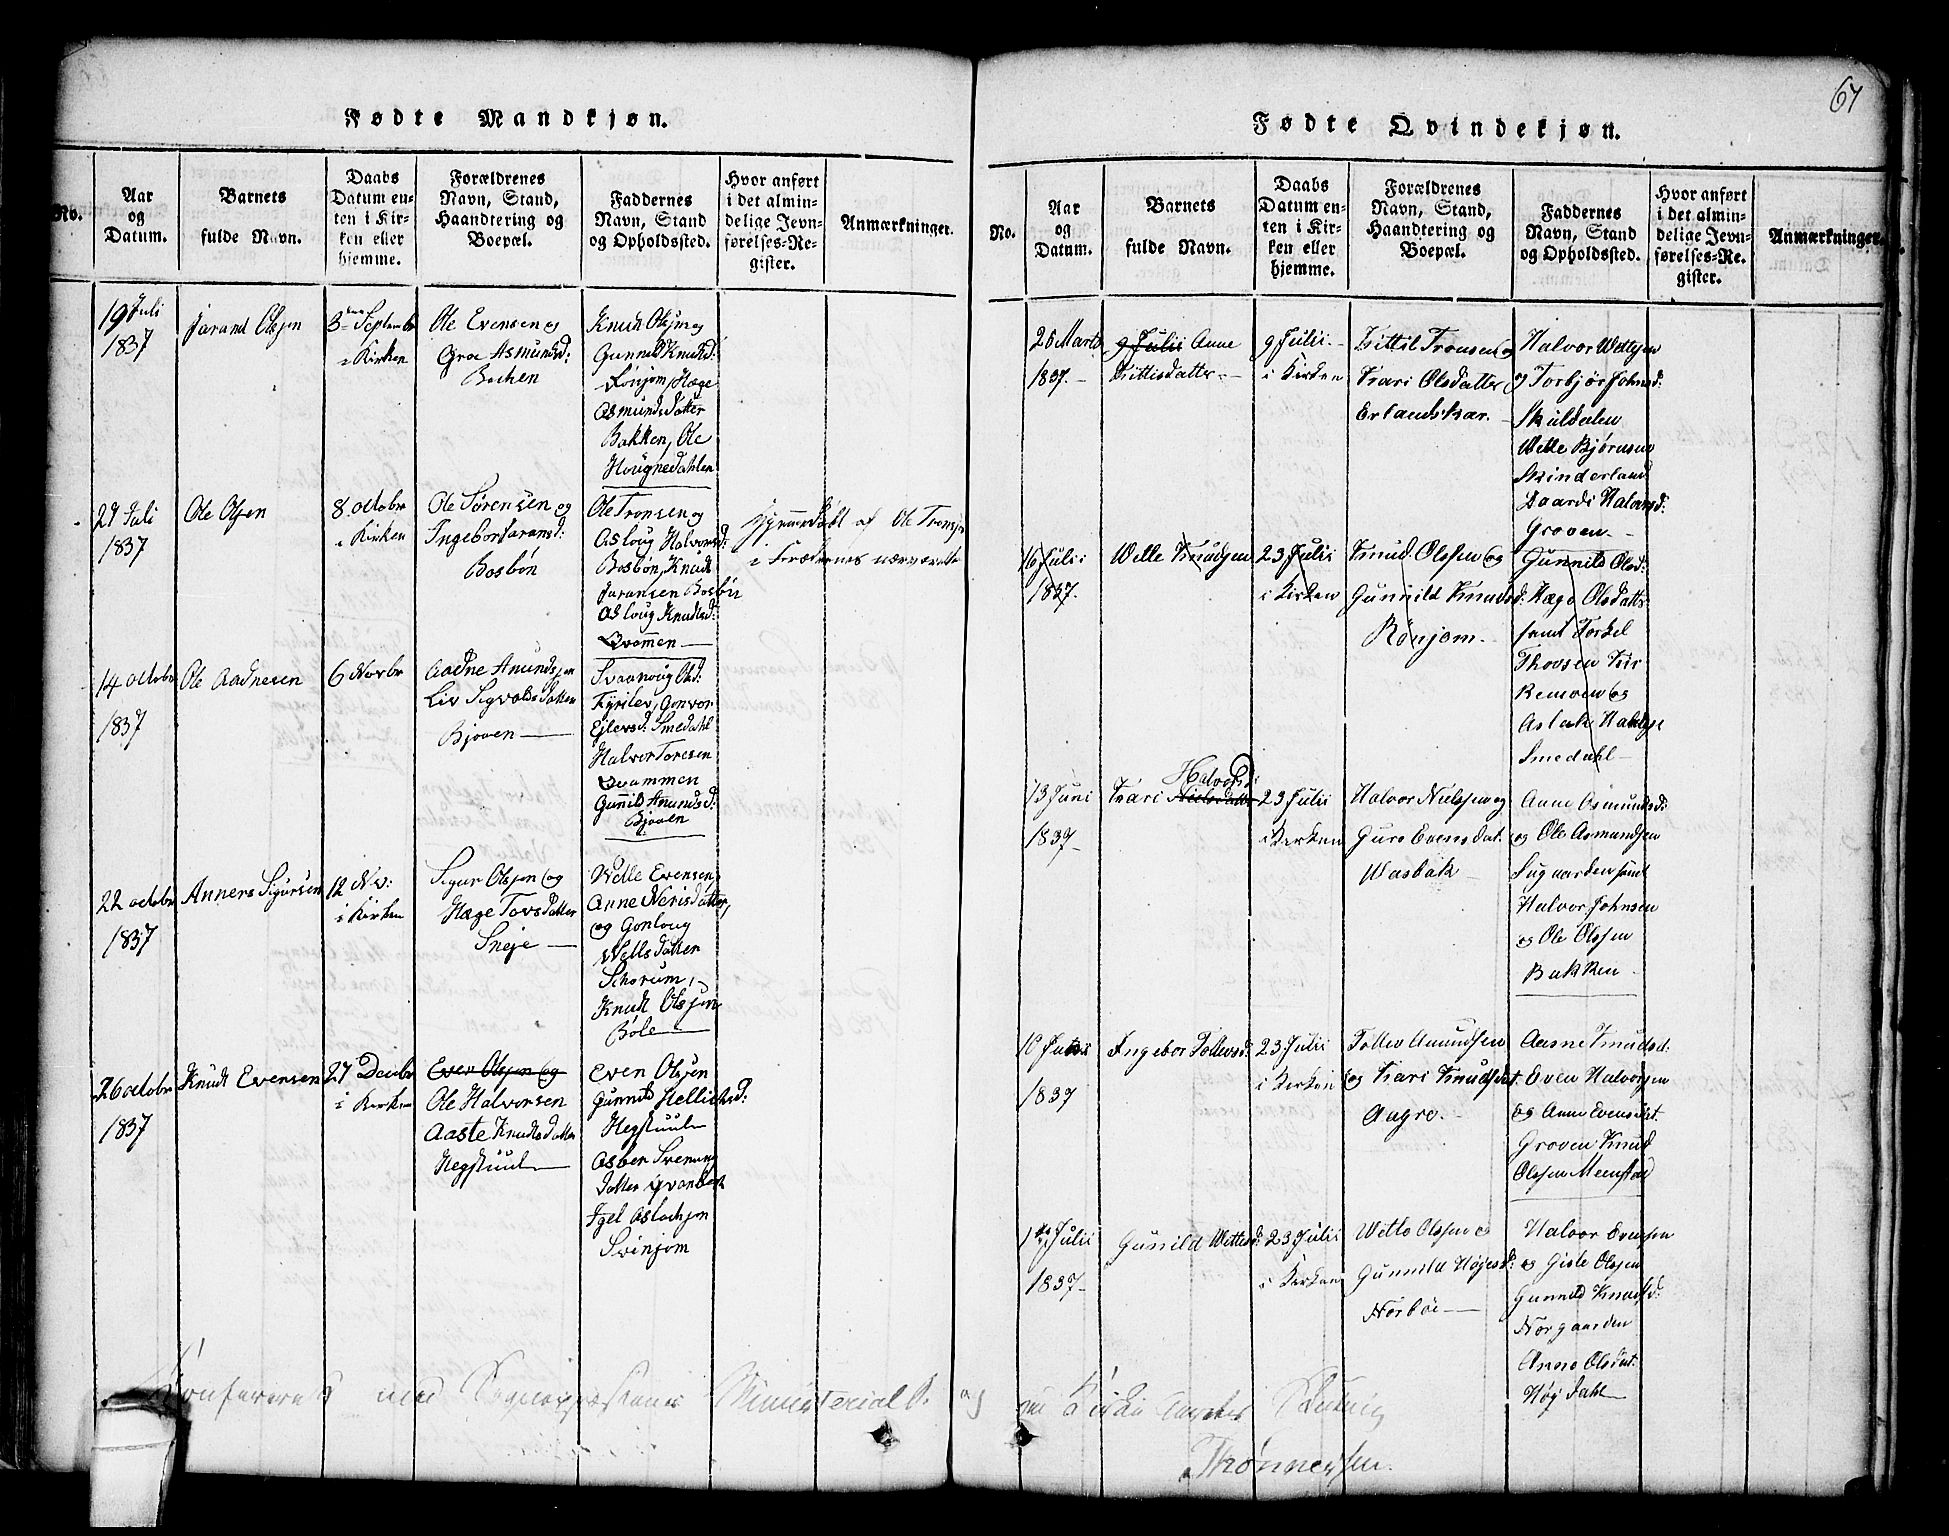 67
Fødte Mandkjøn.
No.
Aar
og
Datum.
Barnets
fulde Navn.
Daabs
Datum en-
ten i Kir-
ken eller
hjemme.
Forældrenes
Navn, Stand,
Haandtering og
Boepæl.
Faddernes
Navn, Stand
og Opholdssted.
Hvor anført
i det almin-
delige Jevn-
førelses-Re-
gister.
Anmærkninger.
19 Juli
1837
Jarand Olsen
3 Septembr
i Kirken
Ole Evensen og
Groe Asmundsd:
Bechen
Knud Olsen og
Gunnild Knudsd:
Hæge
Asmundsdatter
Bakken, Ole
Hougnedahlen
27 Juli
1837
Ole Olsen
8 octobr
i Kirken
Ole Sørensen og
Ingebor Jaransd:
Bosbøn
Ole Tronsen og
Asloug Halvorsd:
Bosbøn, Knud
Jaransen Bosbøn
Asloug Knudsd:
Qvammen
Hjemmedøbt af Ole Tronsen
i Nærværelse
14 octobr
1837
Ole Aadnesen
6 Novbr
Aadne Anundsen
Liv Sigvaldsdatter
Bjaaen
Svaanaug Olsd:
Fyrilev, Gonvor
Ejlevsd: Smedahl
Halvor Toresen
Qvammen
Gunild Anundsd:
Bjaaen
22 octobr
1837
Anners Sigursen
12 Nov:
i Kirken
Sigur Olsen og
Hæge Tovsdatter
Sneje
Welle Evensen,
Anne Nerisdatter,
og Gonloug
Wellsdatter
Schorum,
Knud Olsen
Bøle
26 octobr
1837
Knud Evensen
27 Decbr
i Kirken
Even Olsen og
Ole Halvorsen
Aaste Knudsdatter
Hegstuul
Even Olsen
Gunnild Hellichsd:
Hegstuul
Asber Svenung
datter Qvambek
Igel Aslachsen
Svinjom
Fødte Qvindekjøn.
No.
Aar
og
Datum.
Barnets
fulde Navn.
Daabs
Datum en-
ten i Kir-
ken eller
hjemme.
Forældrenes
Navn, Stand,
Haandtering og
Boepæl.
Faddernes
Navn, Stand
og Opholdssted.
Hvor anført
i det almin-
delige Jevn-
førelses-Re-
gister.
Anmærkninger.
26 Marts
1837.
9 Julii Anne
Kittilsdatter
9 Julii
i Kirken
Kittil Tronsen og
Kari Olsdatter
Erlandskar.
Halvor Wettesen
og Torbjør Johnsd:
Skaldalen
Wetle Bjørnsen
Skinderland
Halvorsd:
Groven
16 Julii
1837.
Welle Knudsen
23 Julii
i Kirken
Knud Olssen og
Gunnild Knudsd:
Rønjom
Gunnild Olsd:
Hæge Olsdatter
samt Torkel
Thovsen
Remoen og
Aslak
Smedahl
13 Juni
1837
Kari Nielsdatter
Halvorsd:
23 Julii
i Kirken
Halvor Nielssen og
Guro Evensdat.
Wasbak
Anne Asmundsd:
og Ole Asmundsen
Sugaarden samt
Halvor Johnsen
og Ole Olssen
Bakken
10 Juni
1837
Ingebor Tollevsd:
23 Julii
i Kirken
Tollev Amundsen
og Kari Knudsdat.
Augro.
Aasne Knudsd:
Even Halvorsen
og Anne Evensdat.
Groven Knud
Olssen Meenstad
1ste Julii
1837
Gunild Wettesd:
23 Julii
i Kirken
Wetle Olssen og
Gunnild Høyesd:
Norbøe
Halvor Evensen
og Gisle Olssen
Gunnild Knudsd:
Norgaarden
Anne Olsdat.
Høydahl
Konfereret med Sognepræstens Ministerial B. og
Thønnessen.